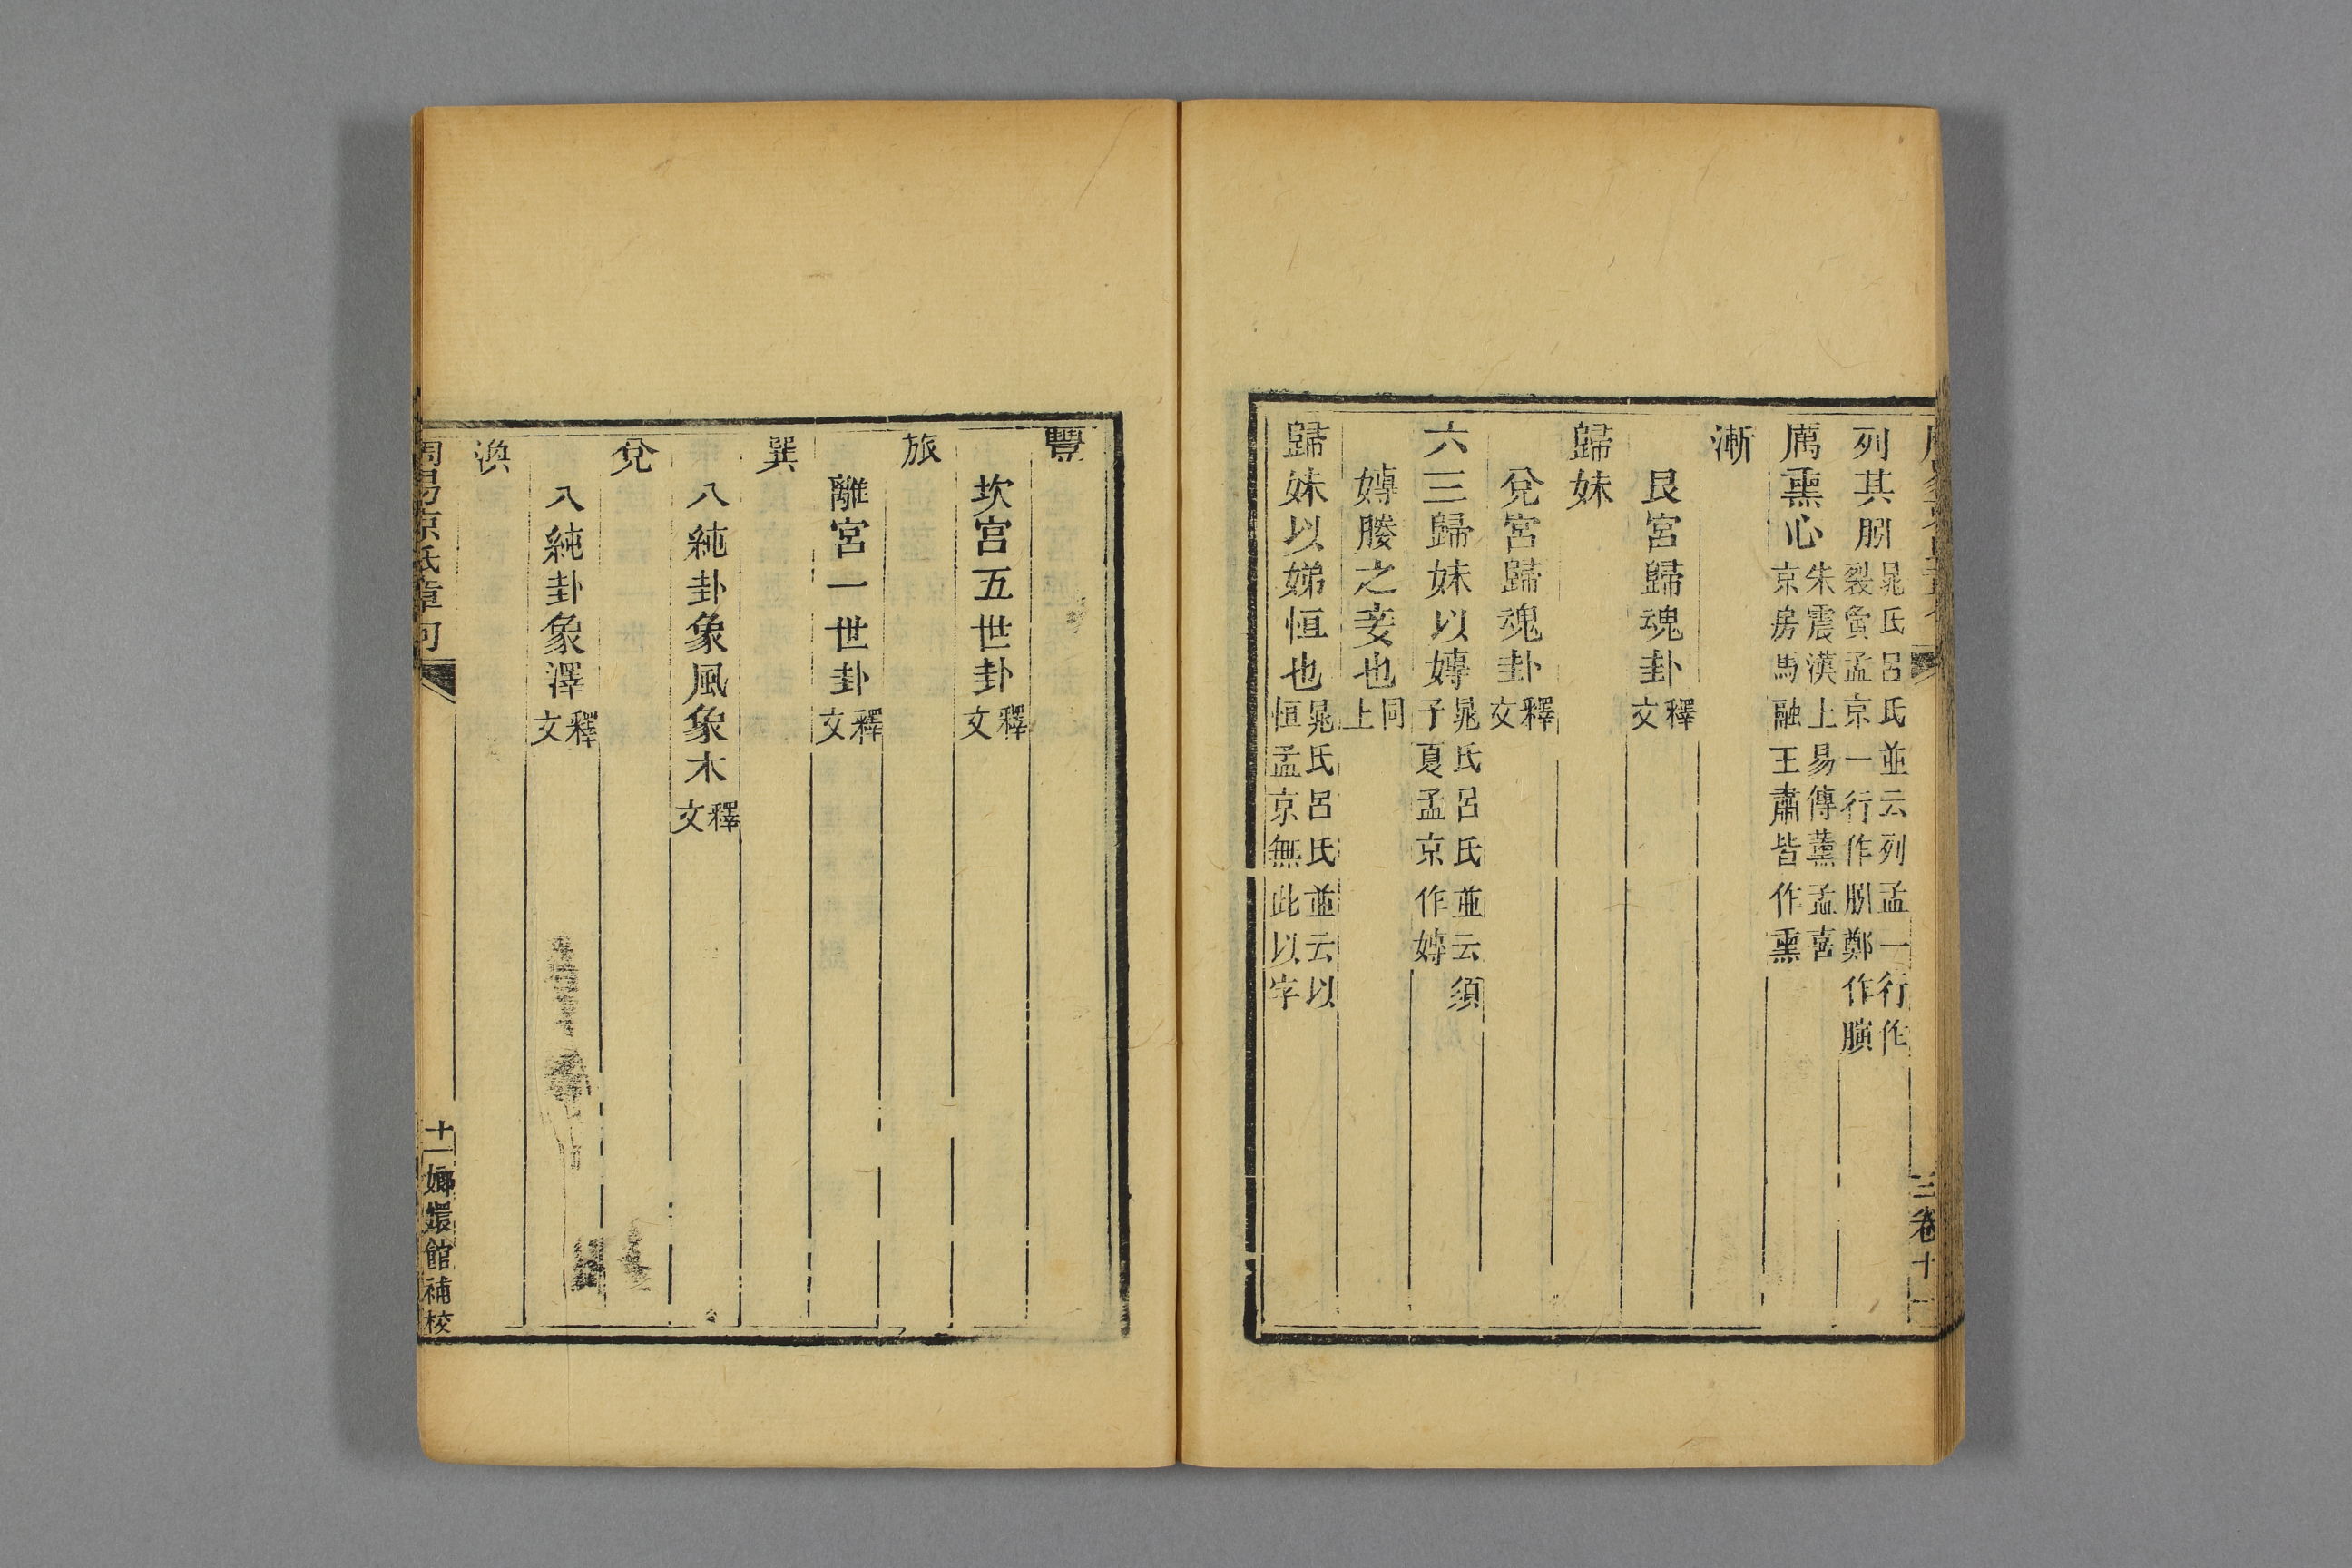 列其䏖晁氏呂氏並云列孟一行作裂夤孟京一行作䏖鄭作臏
厲熏心朱震漢上易傳薰孟喜京房馬融王肅皆作熏
漸
艮宮歸魂卦釋文
歸妹
兌宮歸魂卦釋文
六三歸妹以嬬晁氏呂氏並云須子夏孟京作嬬
媵之妾也同上
歸妹以娣恒也晁氏呂氏並云以恒孟京無此以字
三卷十一
豐
坎宮五世卦釋文
旅
離宮一世卦釋文
巽
八純卦象風象木釋文
兌
八純卦象澤釋文
渙
周易京氏章句
十一
嫏嬛館補校